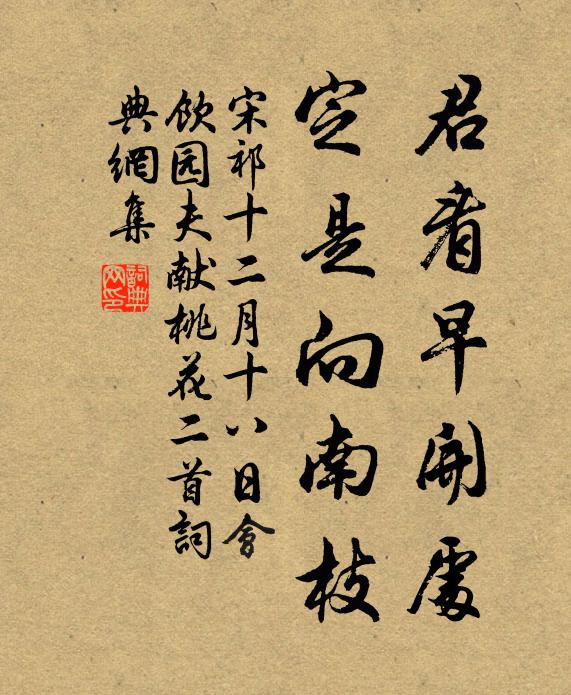 君看早開處
定是向南枝
宋祁十二月十八日會
飲园夫献桃花二首詞
典網集
詞典網印